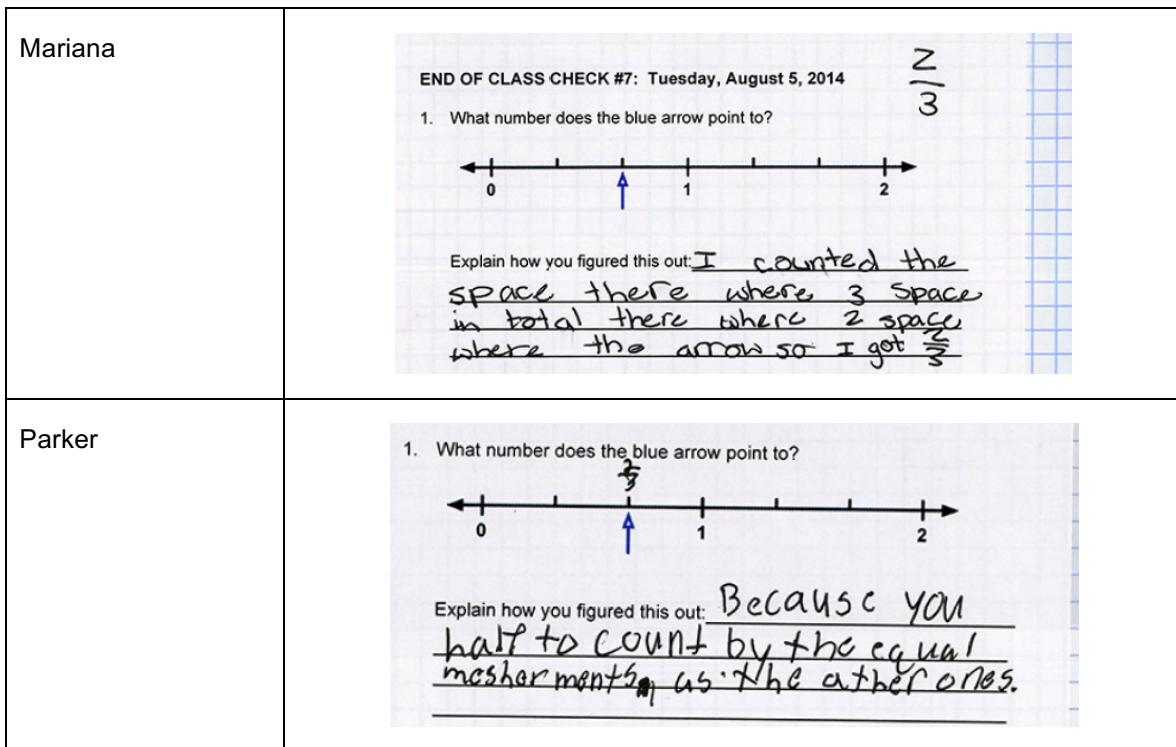 Mariana
END OF CLASS CHECK #7: Tuesday, August 5, 2014
2/3
1. What number does the blue arrow point to?
0 1 2
Explain how you figured this out: I counted the
space there where 3 space
in total there where 2 space
where the arrow so I got 2/3
Parker
1. What number does the blue arrow point to?
2/3
0 1 2
Explain how you figured this out: Because you
half to count by the equal
mesherments as the ather ones.